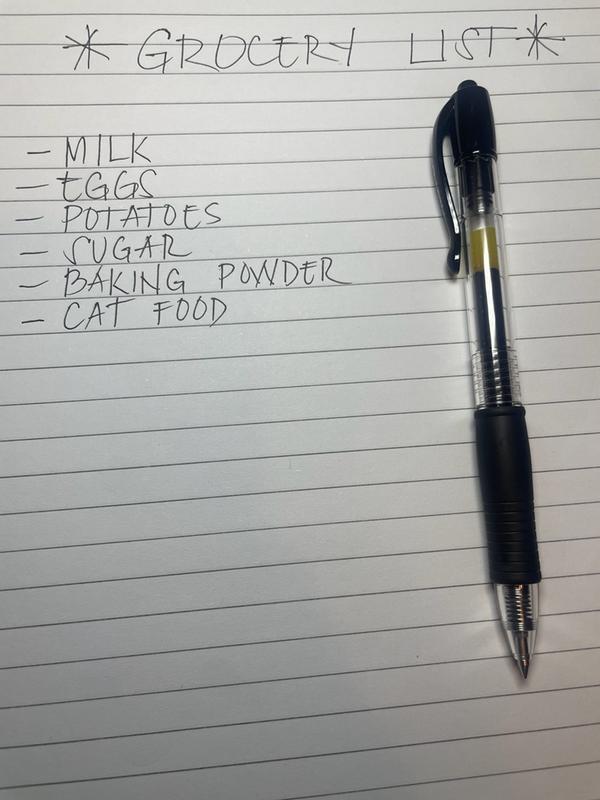 * GROCERY LIST *
- MILK
- EGGS
- POTATOES
- SUGAR
- BAKING POWDER
- CAT FOOD